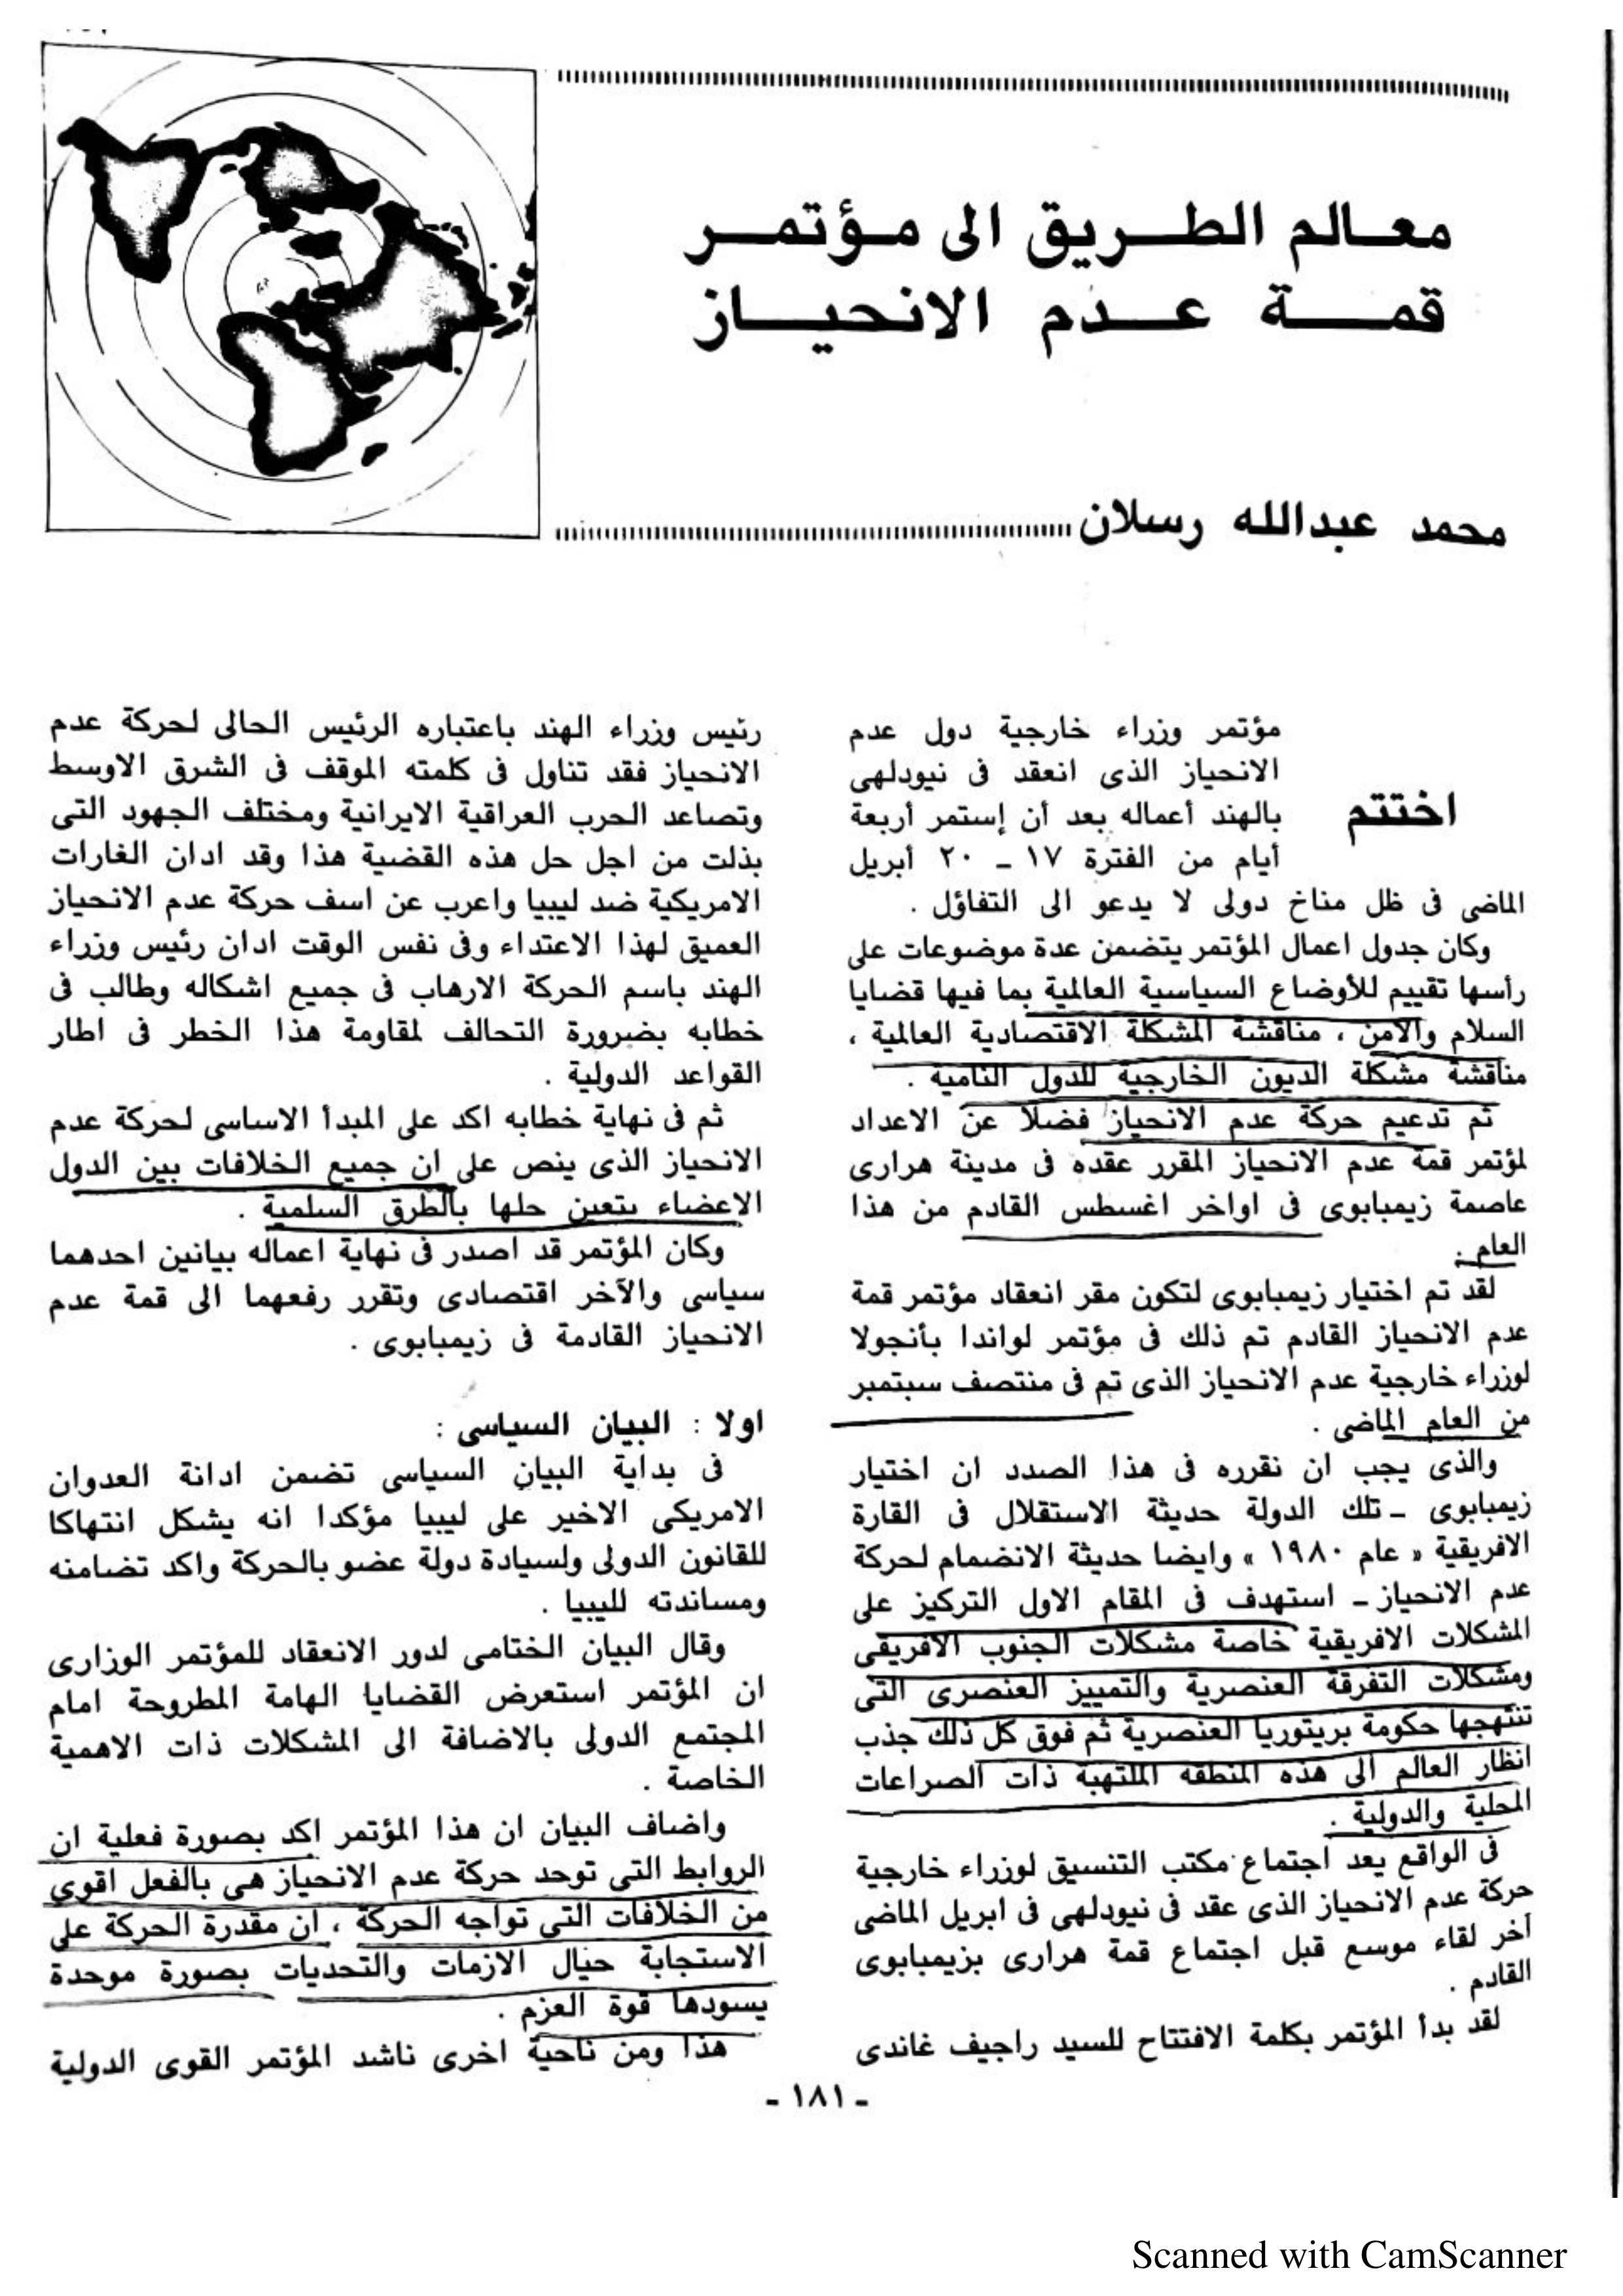 معالم الطريق الى مؤتمر
قمة عدم الانحياز
محمد عبدالله رسلان
اختتم
مؤتمر وزراء خارجية دول عدم
الانحياز الذى انعقد فى نيودلهى
بالهند أعماله بعد أن إستمر أربعة
أيام من الفترة ١٧ ـ ٢٠ أبريل
الماضى فى ظل مناخ دولى لا يدعو الى التفاؤل .
وكان جدول اعمال المؤتمر يتضمن عدة موضوعات على
رأسها تقييم للأوضاع السياسية العالمية بما فيها قضايا
السلام والأمن ، مناقشة المشكلة الاقتصادية العالمية ،
مناقشة مشكلة الديون الخارجية للدول النامية .
ثم تدعيم حركة عدم الانحياز فضلا عن الاعداد
لمؤتمر قمة عدم الانحياز المقرر عقده فى مدينة هرارى
عاصمة زيمبابوى فى اواخر اغسطس القادم من هذا
العام .
لقد تم اختيار زيمبابوى لتكون مقر انعقاد مؤتمر قمة
عدم الانحياز القادم تم ذلك فى مؤتمر لواندا بأنجولا
لوزراء خارجية عدم الانحياز الذى تم فى منتصف سبتمبر
من العام الماضى .
والذى يجب ان نقرره فى هذا الصدد ان اختيار
زيمبابوى ـ تلك الدولة حديثة الاستقلال فى القارة
الافريقية « عام ١٩٨٠ » وايضا حديثة الانضمام لحركة
عدم الانحياز ـ استهدف فى المقام الاول التركيز على
المشكلات الافريقية خاصة مشكلات الجنوب الافريقى
ومشكلات التفرقة العنصرية والتمييز العنصرى التى
تنتهجها حكومة بريتوريا العنصرية ثم فوق كل ذلك جذب
انظار العالم الى هذه المنطقه الملتهبة ذات الصراعات
المحلية والدولية .
فى الواقع يعد اجتماع مكتب التنسيق لوزراء خارجية
حركة عدم الانحياز الذى عقد فى نيودلهى فى ابريل الماضى
آخر لقاء موسع قبل اجتماع قمة هرارى بزيمبابوى
القادم .
لقد بدأ المؤتمر بكلمة الافتتاح للسيد راجيف غاندى
رئيس وزراء الهند باعتباره الرئيس الحالى لحركة عدم
الانحياز فقد تناول فى كلمته الموقف فى الشرق الاوسط
وتصاعد الحرب العراقية الايرانية ومختلف الجهود التى
بذلت من اجل حل هذه القضية هذا وقد ادان الغارات
الامريكية ضد ليبيا واعرب عن اسف حركة عدم الانحياز
العميق لهذا الاعتداء وفى نفس الوقت ادان رئيس وزراء
الهند باسم الحركة الارهاب فى جميع اشكاله وطالب فى
خطابه بضرورة التحالف لمقاومة هذا الخطر فى اطار
القواعد الدولية .
ثم فى نهاية خطابه اكد على المبدأ الاساسى لحركة عدم
الانحياز الذى ينص على ان جميع الخلافات بين الدول
الاعضاء يتعين حلها بالطرق السلمية .
وكان المؤتمر قد اصدر فى نهاية اعماله بيانين احدهما
سياسى والآخر اقتصادى وتقرر رفعهما الى قمة عدم
الانحياز القادمة فى زيمبابوى .
اولا : البيان السياسى :
فى بداية البيان السياسى تضمن ادانة العدوان
الامريكى الاخير على ليبيا مؤكدا انه يشكل انتهاكا
للقانون الدولى ولسيادة دولة عضو بالحركة واكد تضامنه
ومساندته لليبيا .
وقال البيان الختامى لدور الانعقاد للمؤتمر الوزارى
ان المؤتمر استعرض القضايا الهامة المطروحة امام
المجتمع الدولى بالاضافة الى المشكلات ذات الاهمية
الخاصة .
واضاف البيان ان هذا المؤتمر اكد بصورة فعلية ان
الروابط التى توحد حركة عدم الانحياز هى بالفعل اقوى
من الخلافات التى تواجه الحركة ، ان مقدرة الحركة على
الاستجابة حيال الازمات والتحديات بصورة موحدة
يسودها قوة العزم .
هذا ومن ناحية اخرى ناشد المؤتمر القوى الدولية
ـ ١٨١ ـ
Scanned with CamScanner